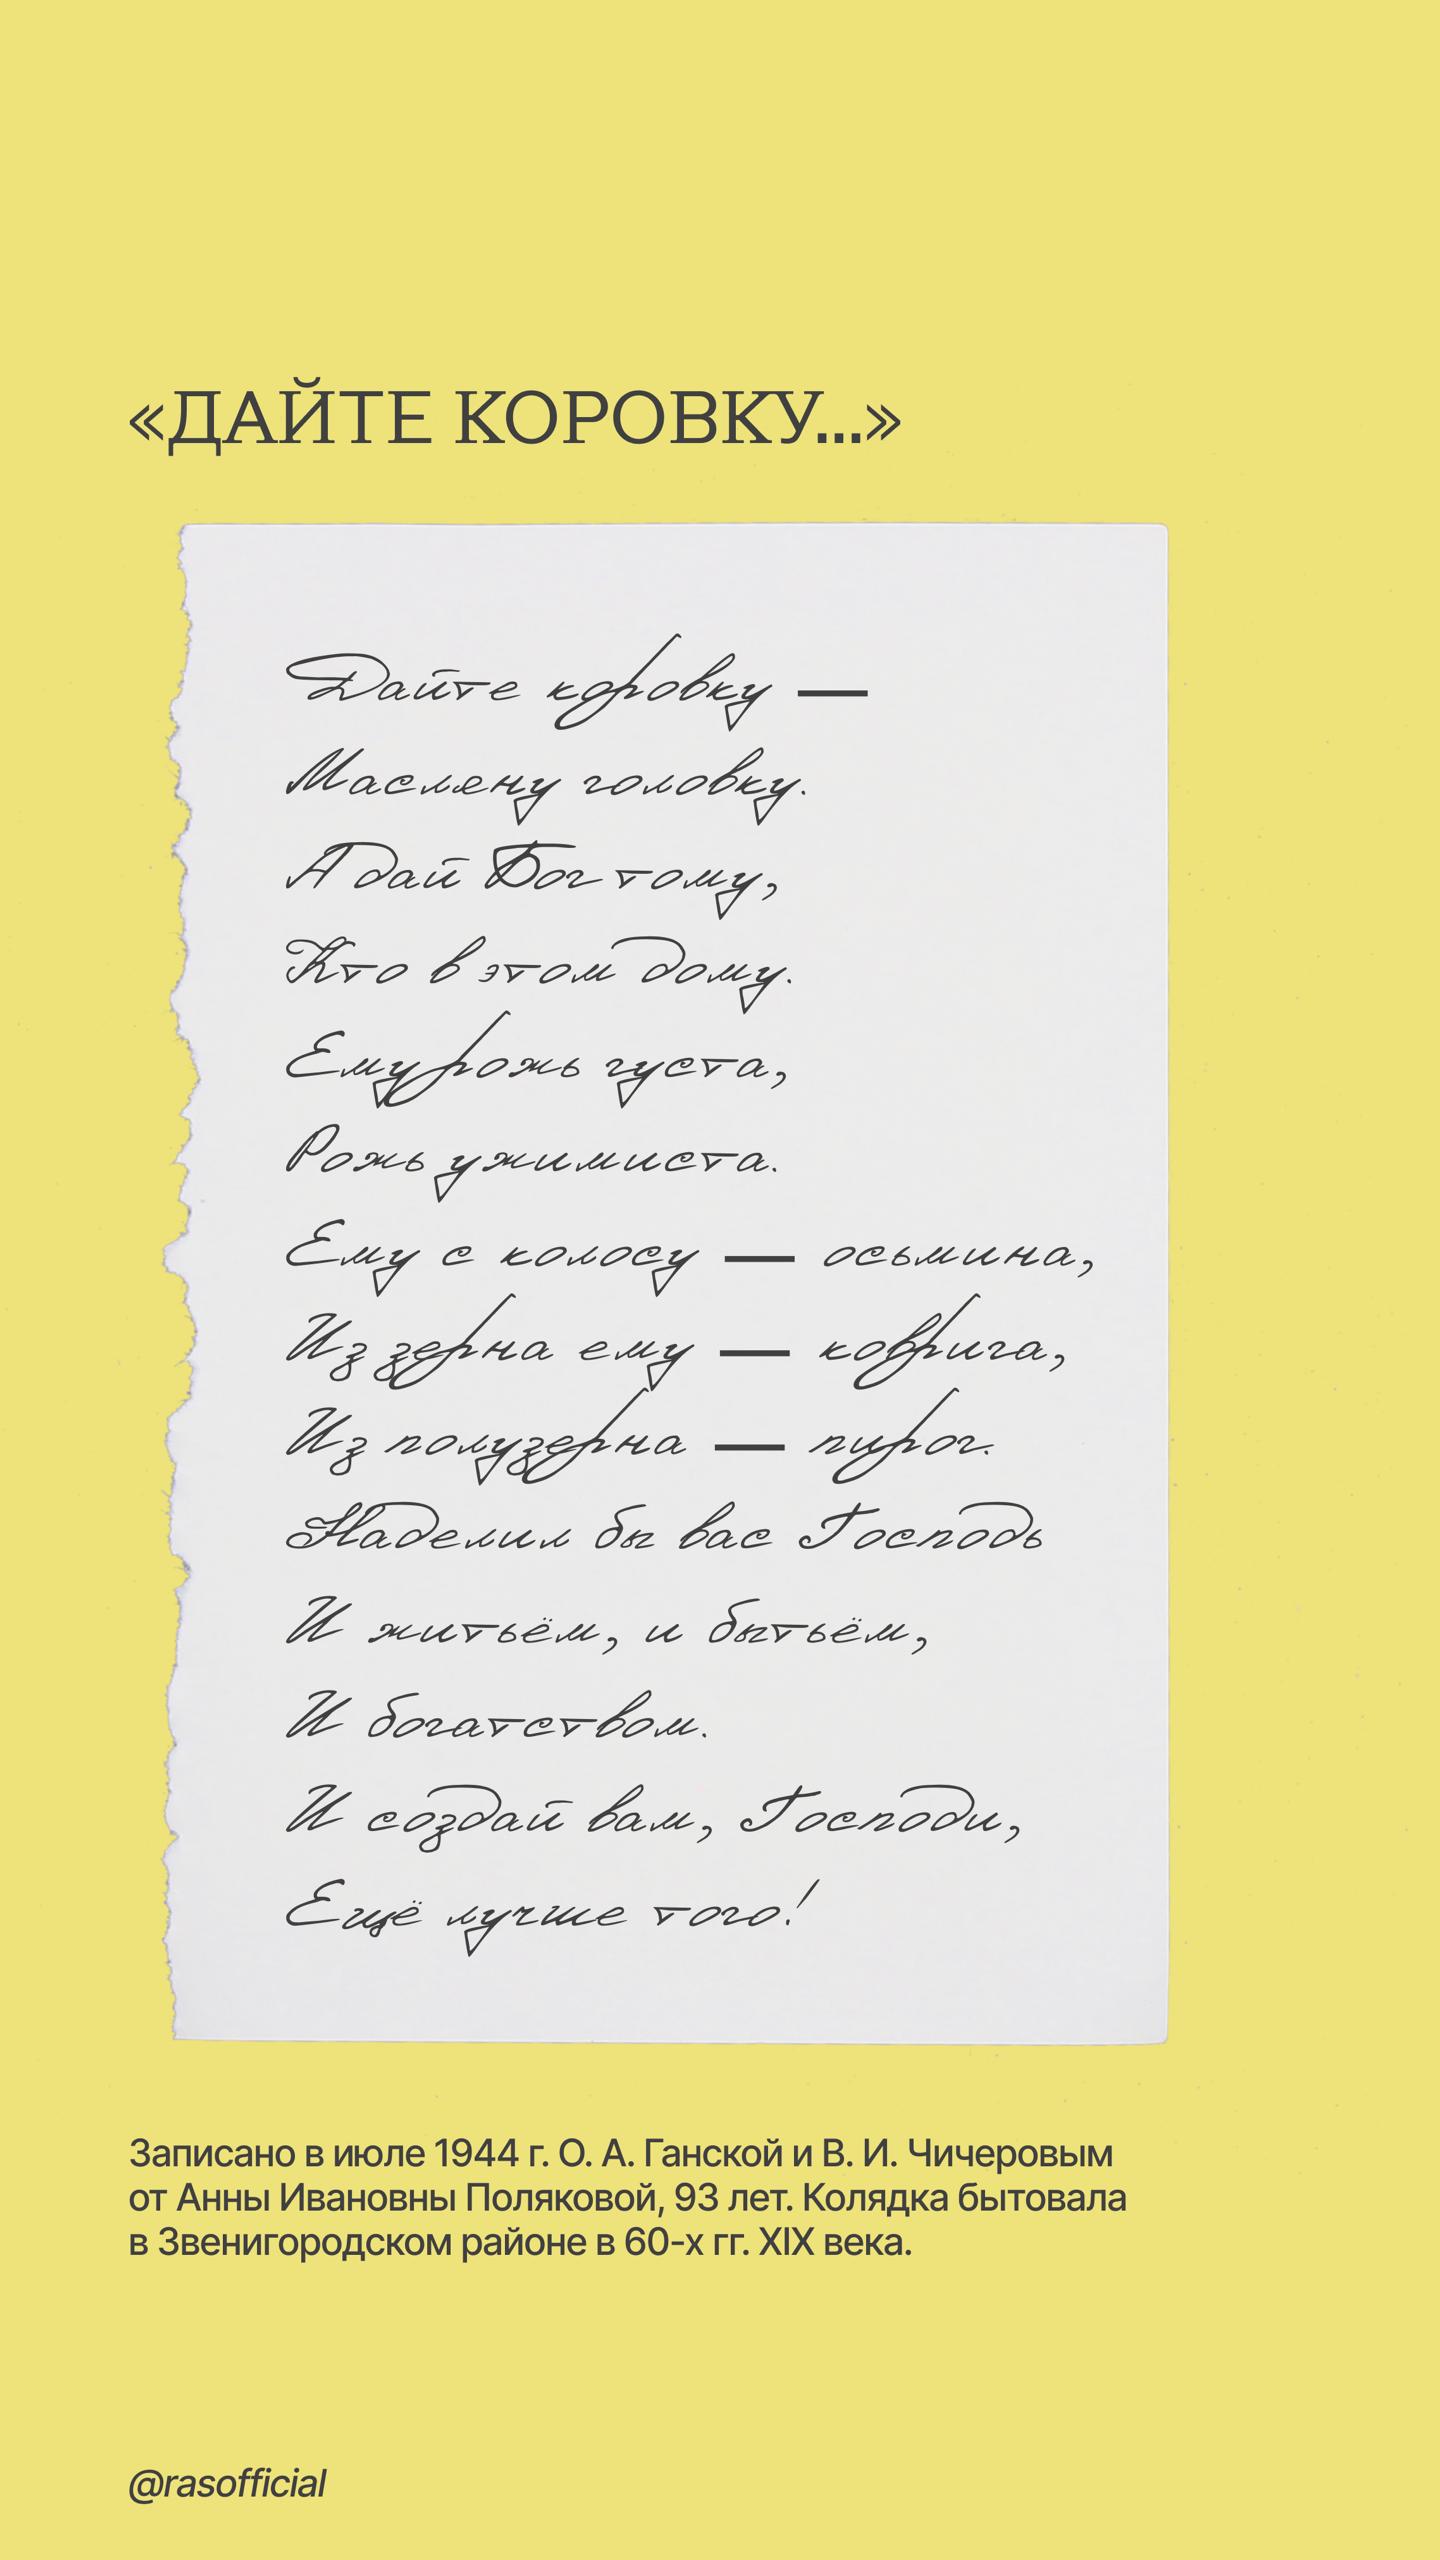 «ДАЙТЕ КОРОВКУ...»
Дайте коровку —
Маслену головку.
А дай Бог тому,
Кто в этом дому.
Ему рожь густа,
Рожь ужимиста.
Ему с колосу — осьмина,
Из зерна ему — коврига,
Из полузерна — пирог.
Наделил бы вас Господь
И житьём, и бытьём,
И богатством.
И создай вам, Господи,
Ещё лучше того!
Записано в июле 1944 г. О. А. Ганской и В. И. Чичеровым
от Анны Ивановны Поляковой, 93 лет. Колядка бытовала
в Звенигородском районе в 60-х гг. XIX века.
@rasofficial